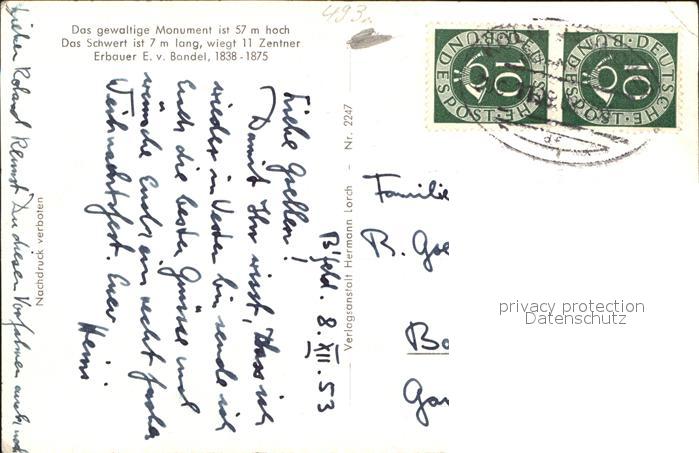 Das gewaltige Monument ist 57 m hoch
Das Schwert ist 7 m lang, wiegt 11 Zentner
Erbauer E. v. Bandel, 1838-1875
493
DEUTSCHE BUNDESPOST
10
DEUTSCHE BUNDESPOST
10
B'feld. 8. XII. 53
Liebe Gsellen!
Damit Ihr wisst, dass ich
wieder im Westen bin sende ich
Euch die besten Grüsse und
wünsche Euch ein recht frohes
Weihnachtsfest. Euer
Heini.
Lieber Roland kennst Du diesen Vorfahren auch noch
Nachdruck verboten
Verlagsanstalt Hermann Lorch - Nr. 2247
Familie
R. Gse
Bo
Gar
privacy protection
Datenschutz